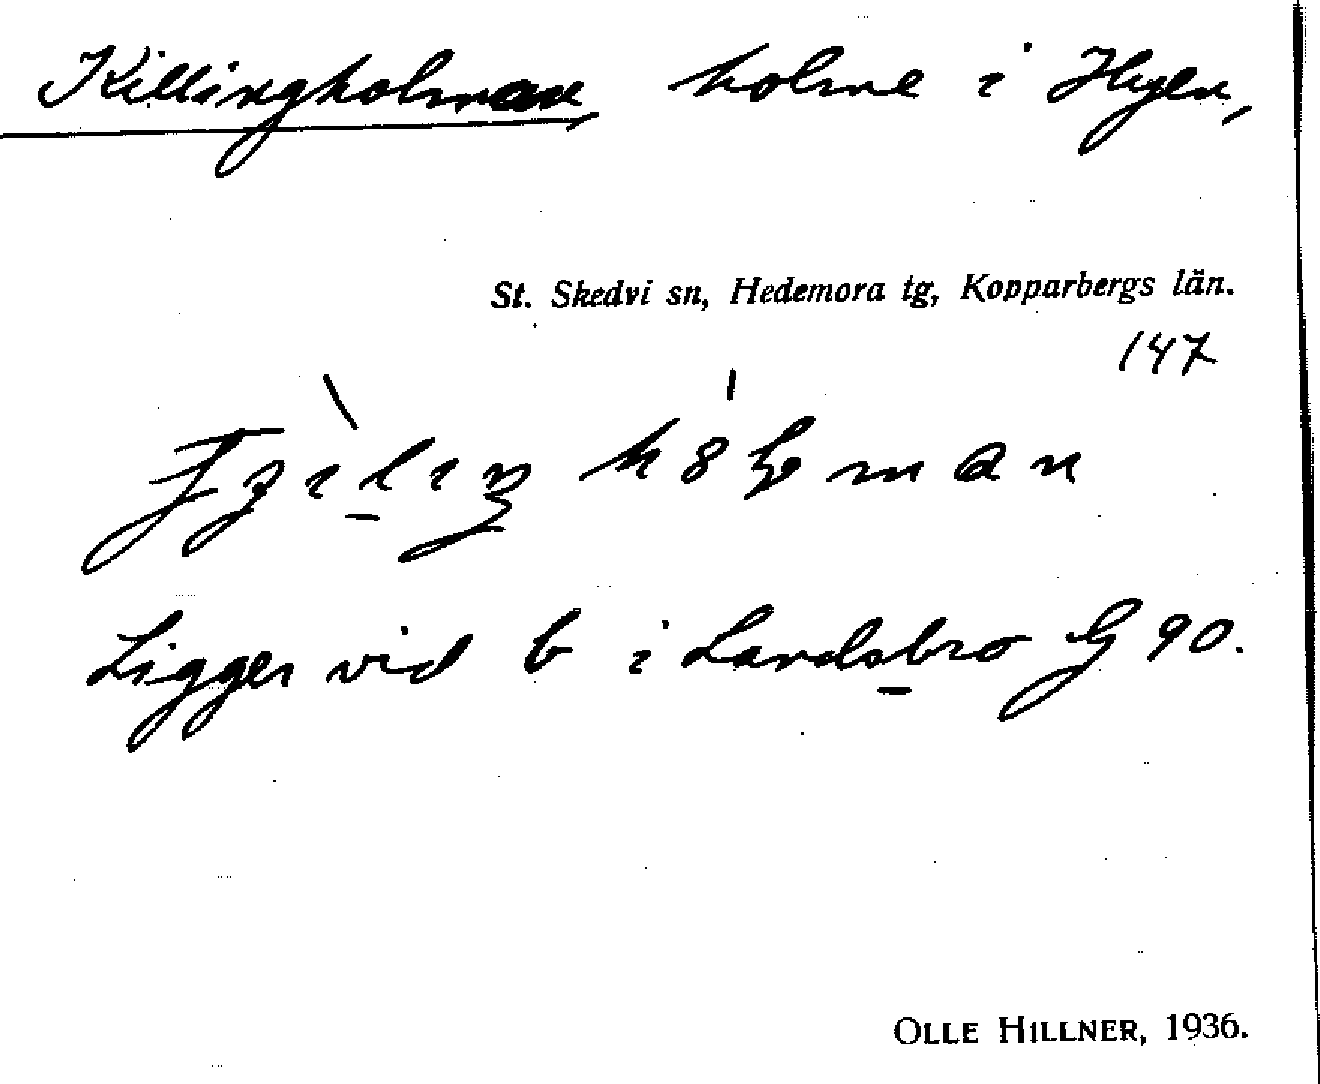 Killingholman, holme i Hyen,
St. Skedvi sn, Hedemora tg, Kopparbergs län.
147
Ligger vid b i Landsbro G 90.
OLLE HILLNER, 1936.